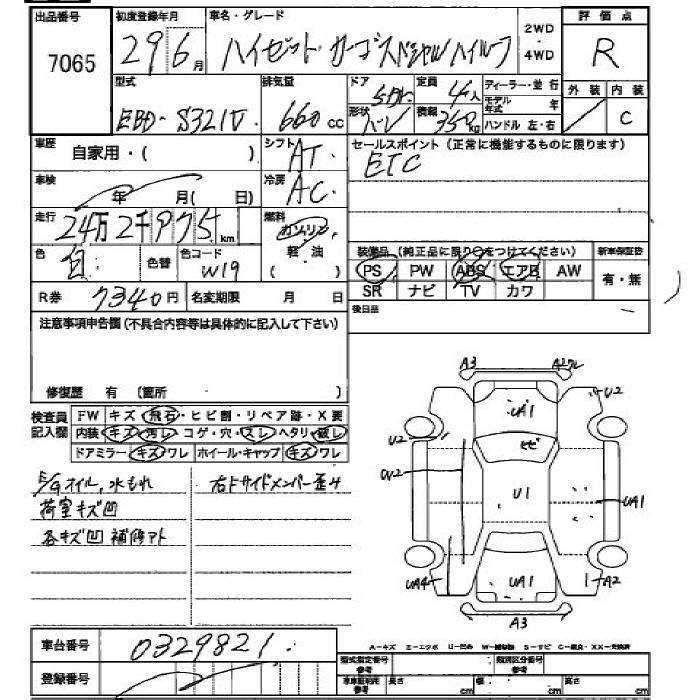 出品番号 初度登録年月 車名・グレード 2WD・4WD 評価点
7065 29 6月 ハイゼット カーゴスペシャルハイルーフ R
型式 排気量 ドア 定員 ディーラー・並行 外装 内装
EBD-S321V 660cc 5Dr 4人 モデル年式 年
形状 バン 積載 350kg ハンドル 左・右 C
車歴 自家用・( ) シフト AT セールスポイント(正常に機能するものに限ります)
車検 年 月( 日) 冷房 AC ETC
走行 24万2千975km 燃料 ガソリン 軽油
装備品(純正品に限り○をつけてください) 新車保証書
色 白 色替 色コード W19 PS PW ABS エアB AW 有・無
R券 7340円 名変期限 月 日 SR ナビ TV カワ
後日品
注意事項申告欄(不具合内容等は具体的に記入して下さい)
修復歴 有 (箇所 )
検査員記入欄 FW キズ・飛石・ヒビ割・リペア跡・X要
内装 キズ・汚レ・コゲ・穴・スレ・ヘタリ・破レ
ドアミラー キズ・ワレ ホイール・キャップ キズ・ワレ
E/Gオイル,水もれ 右Fサイドメンバー歪み
荷室キズ凹
各キズ凹 補修アト
A3 A2ワレ
U2
UA1
U2 ヒビ
U2 U1 UA1
UA4 UA1 A2
A3
車台番号 0329821
A-キズ E-エクボ U-凹み W-補修跡 S-サビ C-腐食・XX-交換済
登録番号 型式指定番号参考 類別区分番号参考
車車証明用参考 長さ cm 幅 cm 高さ cm